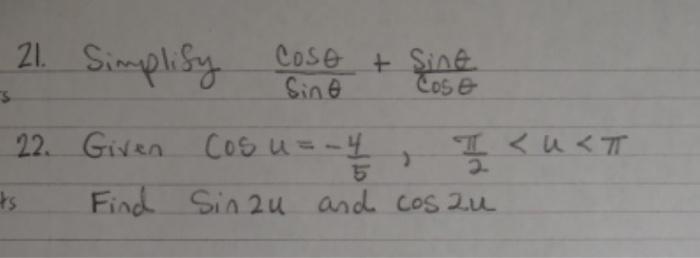 21. Simplify cosθ/sinθ + sinθ/cosθ
s
22. Given cos u = -4/5 , π/2 < u < π
ts Find Sin 2u and cos 2u